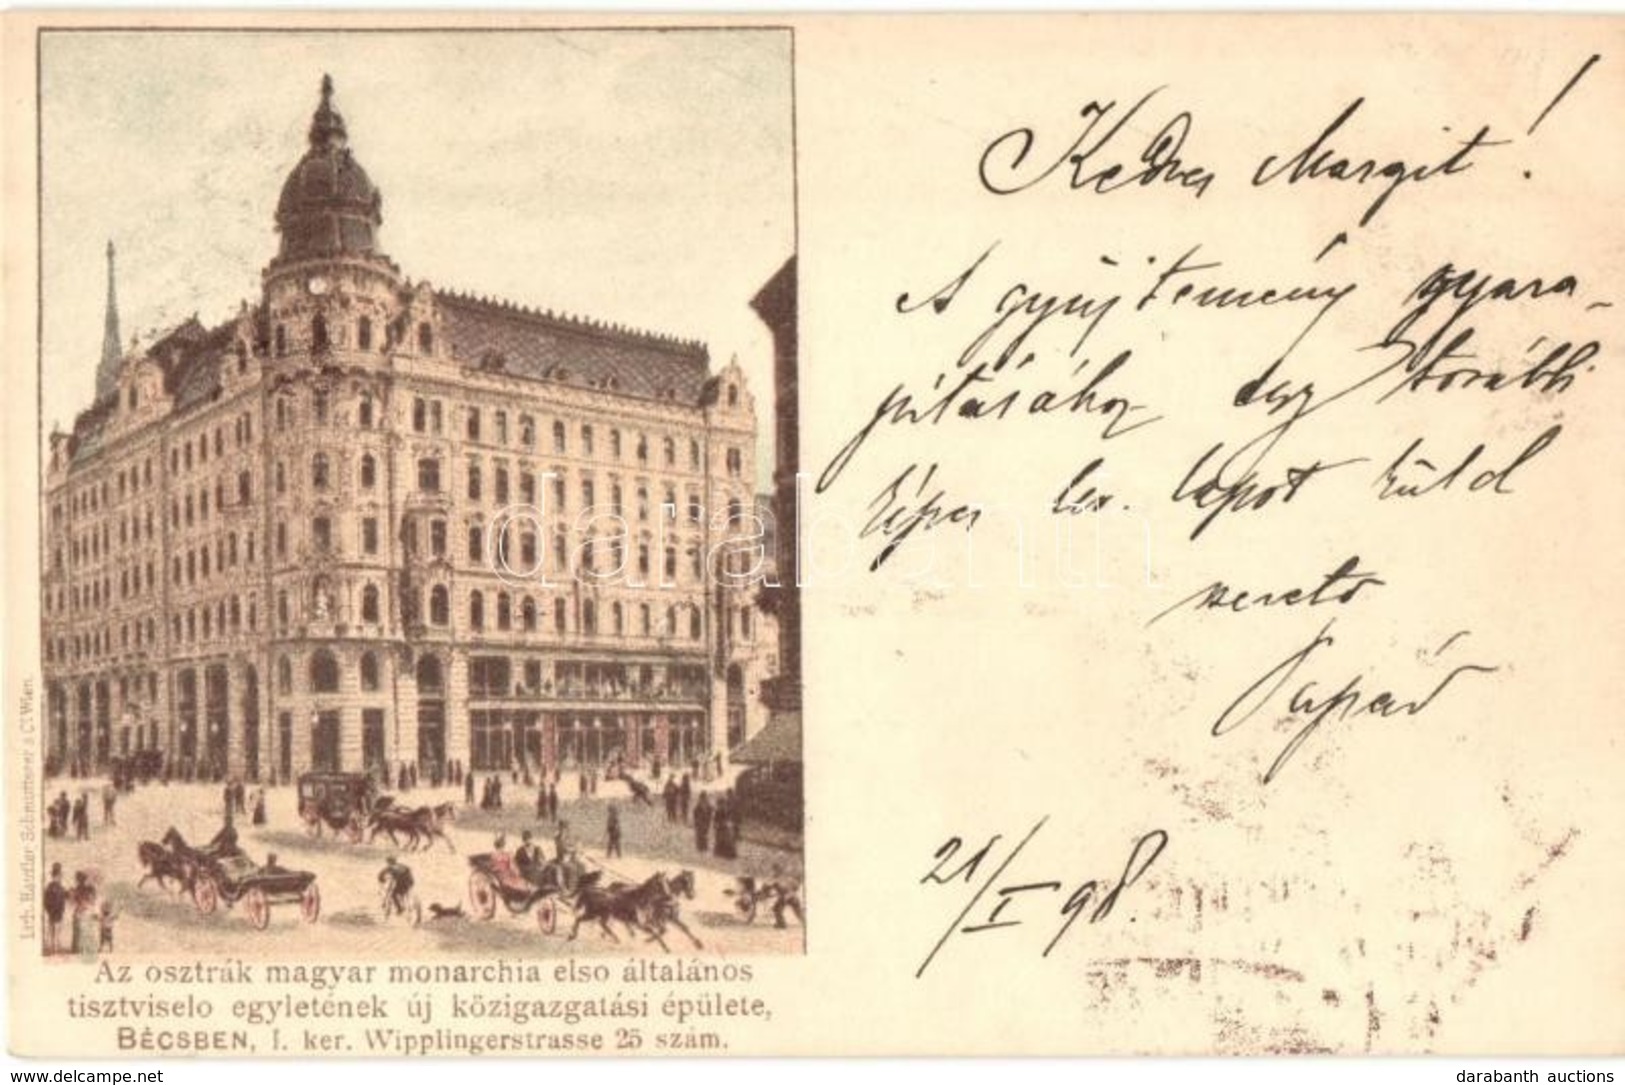 Kedves Margit!
A gyűjtemény gyara-
pításához egy további
képes lev. lapot küld
szerető
Papád
21/I 98.
Lith. Hautler Schmutterer & Co. Wien.
Az osztrák magyar monarchia elso általános
tisztviselo egyletének új közigazgatási épülete,
BÉCSBEN, I. ker. Wipplingerstrasse 25 szám.
darabanth
delcampe.net
darabanth auctions